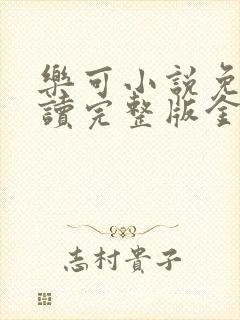 樂可小說免
讀完整版全
志村貴子